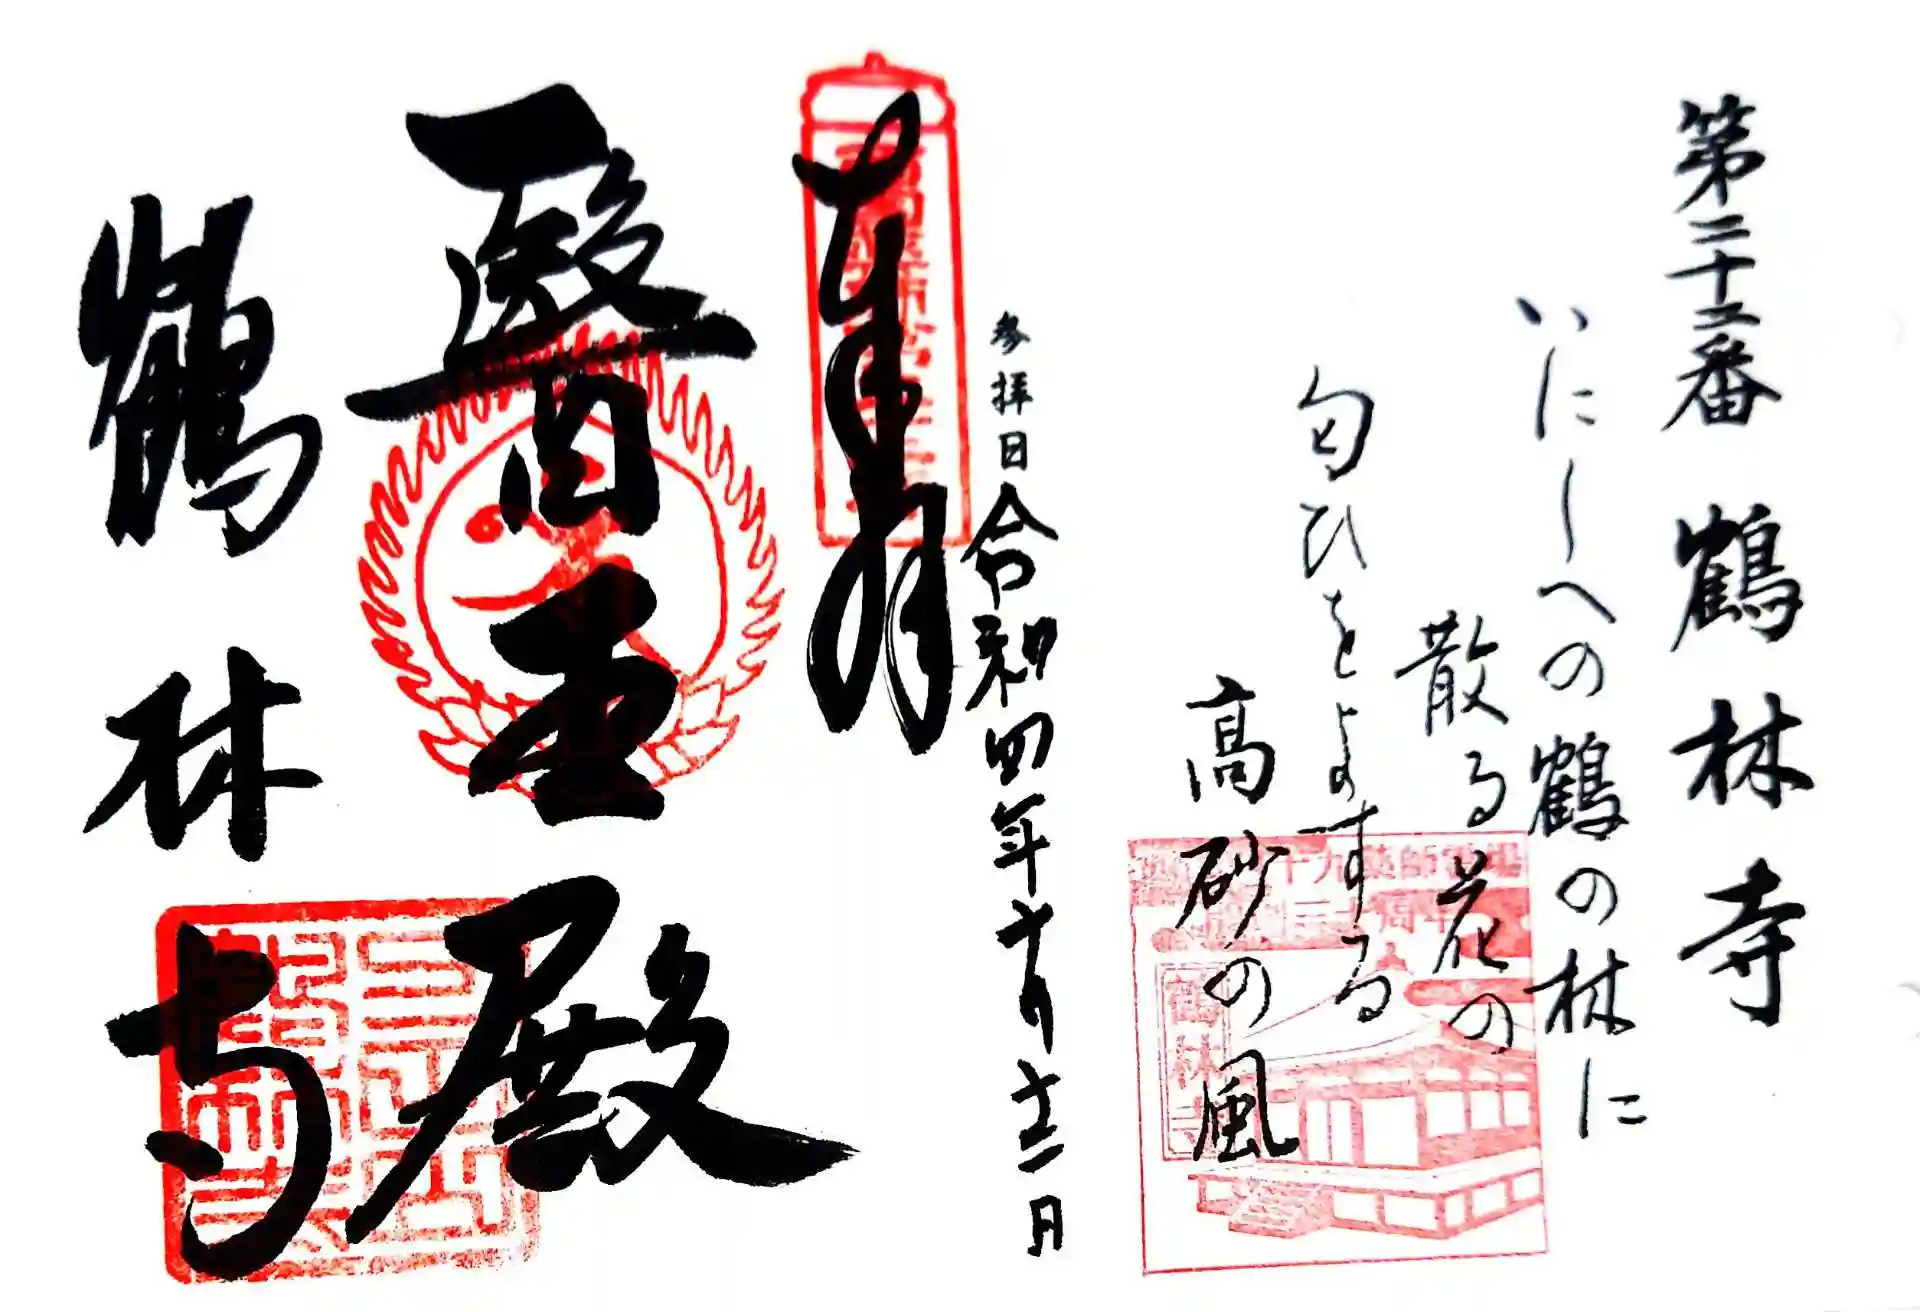 第二十二番 鶴林寺
いにしへの鶴の林に
散る花の
匂ひをよする
高砂の風
十九薬師霊場
周年
鶴林寺
参拝日 令和四年十月
奉拝
醫王殿
鶴林寺